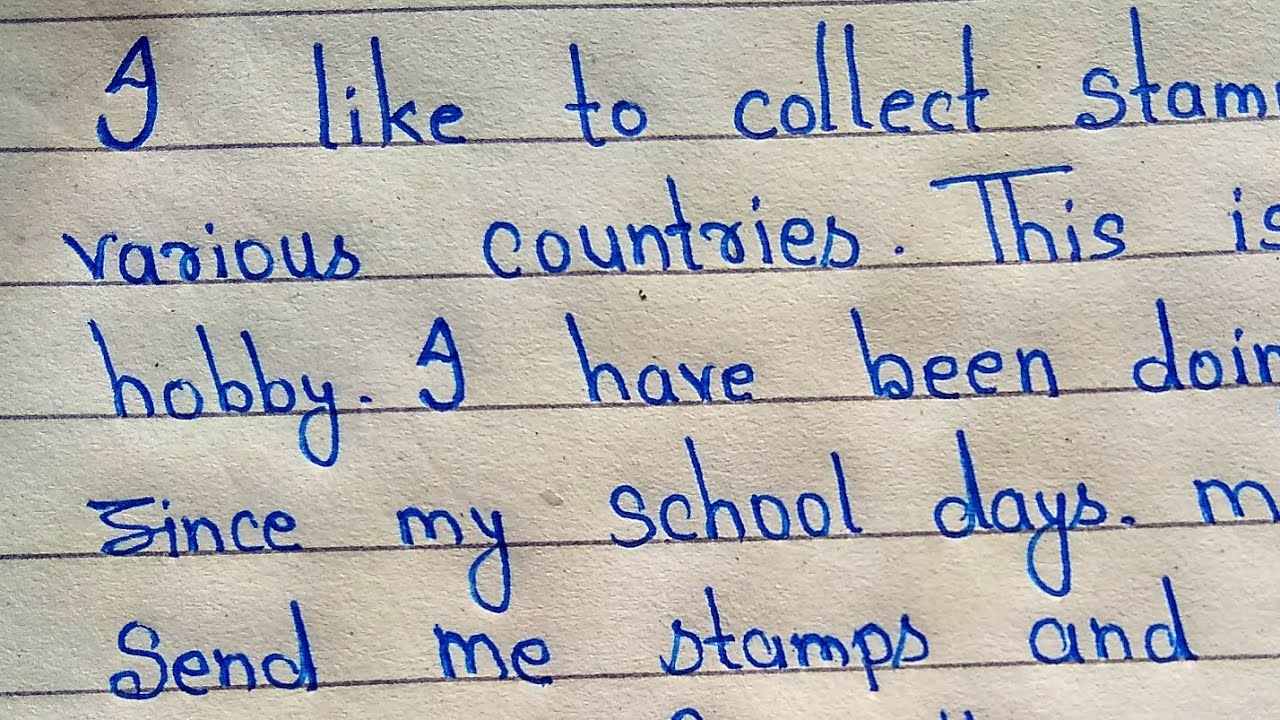 I like to collect stam
various countries. This is
hobby. I have been doin
Since my school days. m
Send me stamps and